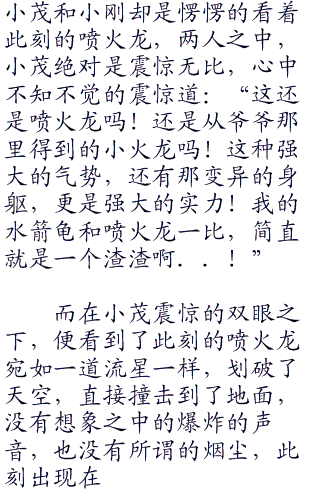 小茂和小刚却是愣愣的看着
此刻的喷火龙，两人之中，
小茂绝对是震惊无比，心中
不知不觉的震惊道：“这还
是喷火龙吗！还是从爷爷那
里得到的小火龙吗！这种强
大的气势，还有那变异的身
躯，更是强大的实力！我的
水箭龟和喷火龙一比，简直
就是一个渣渣啊．．！”
而在小茂震惊的双眼之
下，便看到了此刻的喷火龙
宛如一道流星一样，划破了
天空，直接撞击到了地面，
没有想象之中的爆炸的声
音，也没有所谓的烟尘，此
刻出现在